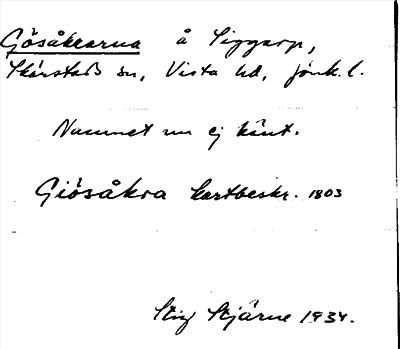 Gösåkrarna å Siggarp,
Skärstads sn, Vista hd, Jönk. l.
Namnet nu ej känt.
Giösåkra kartbeskr. 1803
Stig Stjärne 1934.